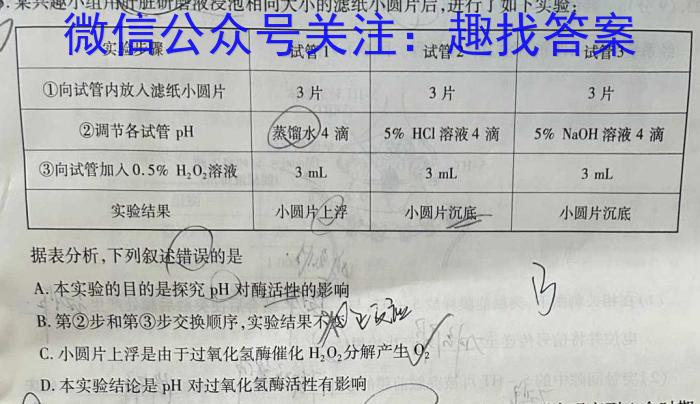 某兴趣小组用肝脏研磨液浸泡相同大小的滤纸小圆片后,进行了如下实验:
微信公众号关注:趣找答案
实验步骤 试管1 试管2 试管3
①向试管内放入滤纸小圆片 3片 3片 3片
②调节各试管 pH 蒸馏水4滴 5% HCl溶液4滴 5% NaOH溶液4滴
③向试管加入0.5% H₂O₂溶液 3 mL 3 mL 3 mL
实验结果 小圆片上浮 小圆片沉底 小圆片沉底
据表分析,下列叙述错误的是
A. 本实验的目的是探究 pH 对酶活性的影响
B. 第②步和第③步交换顺序,实验结果不
C. 小圆片上浮是由于过氧化氢酶催化 H₂O₂分解产生 O₂
D. 本实验结论是 pH 对过氧化氢酶活性有影响